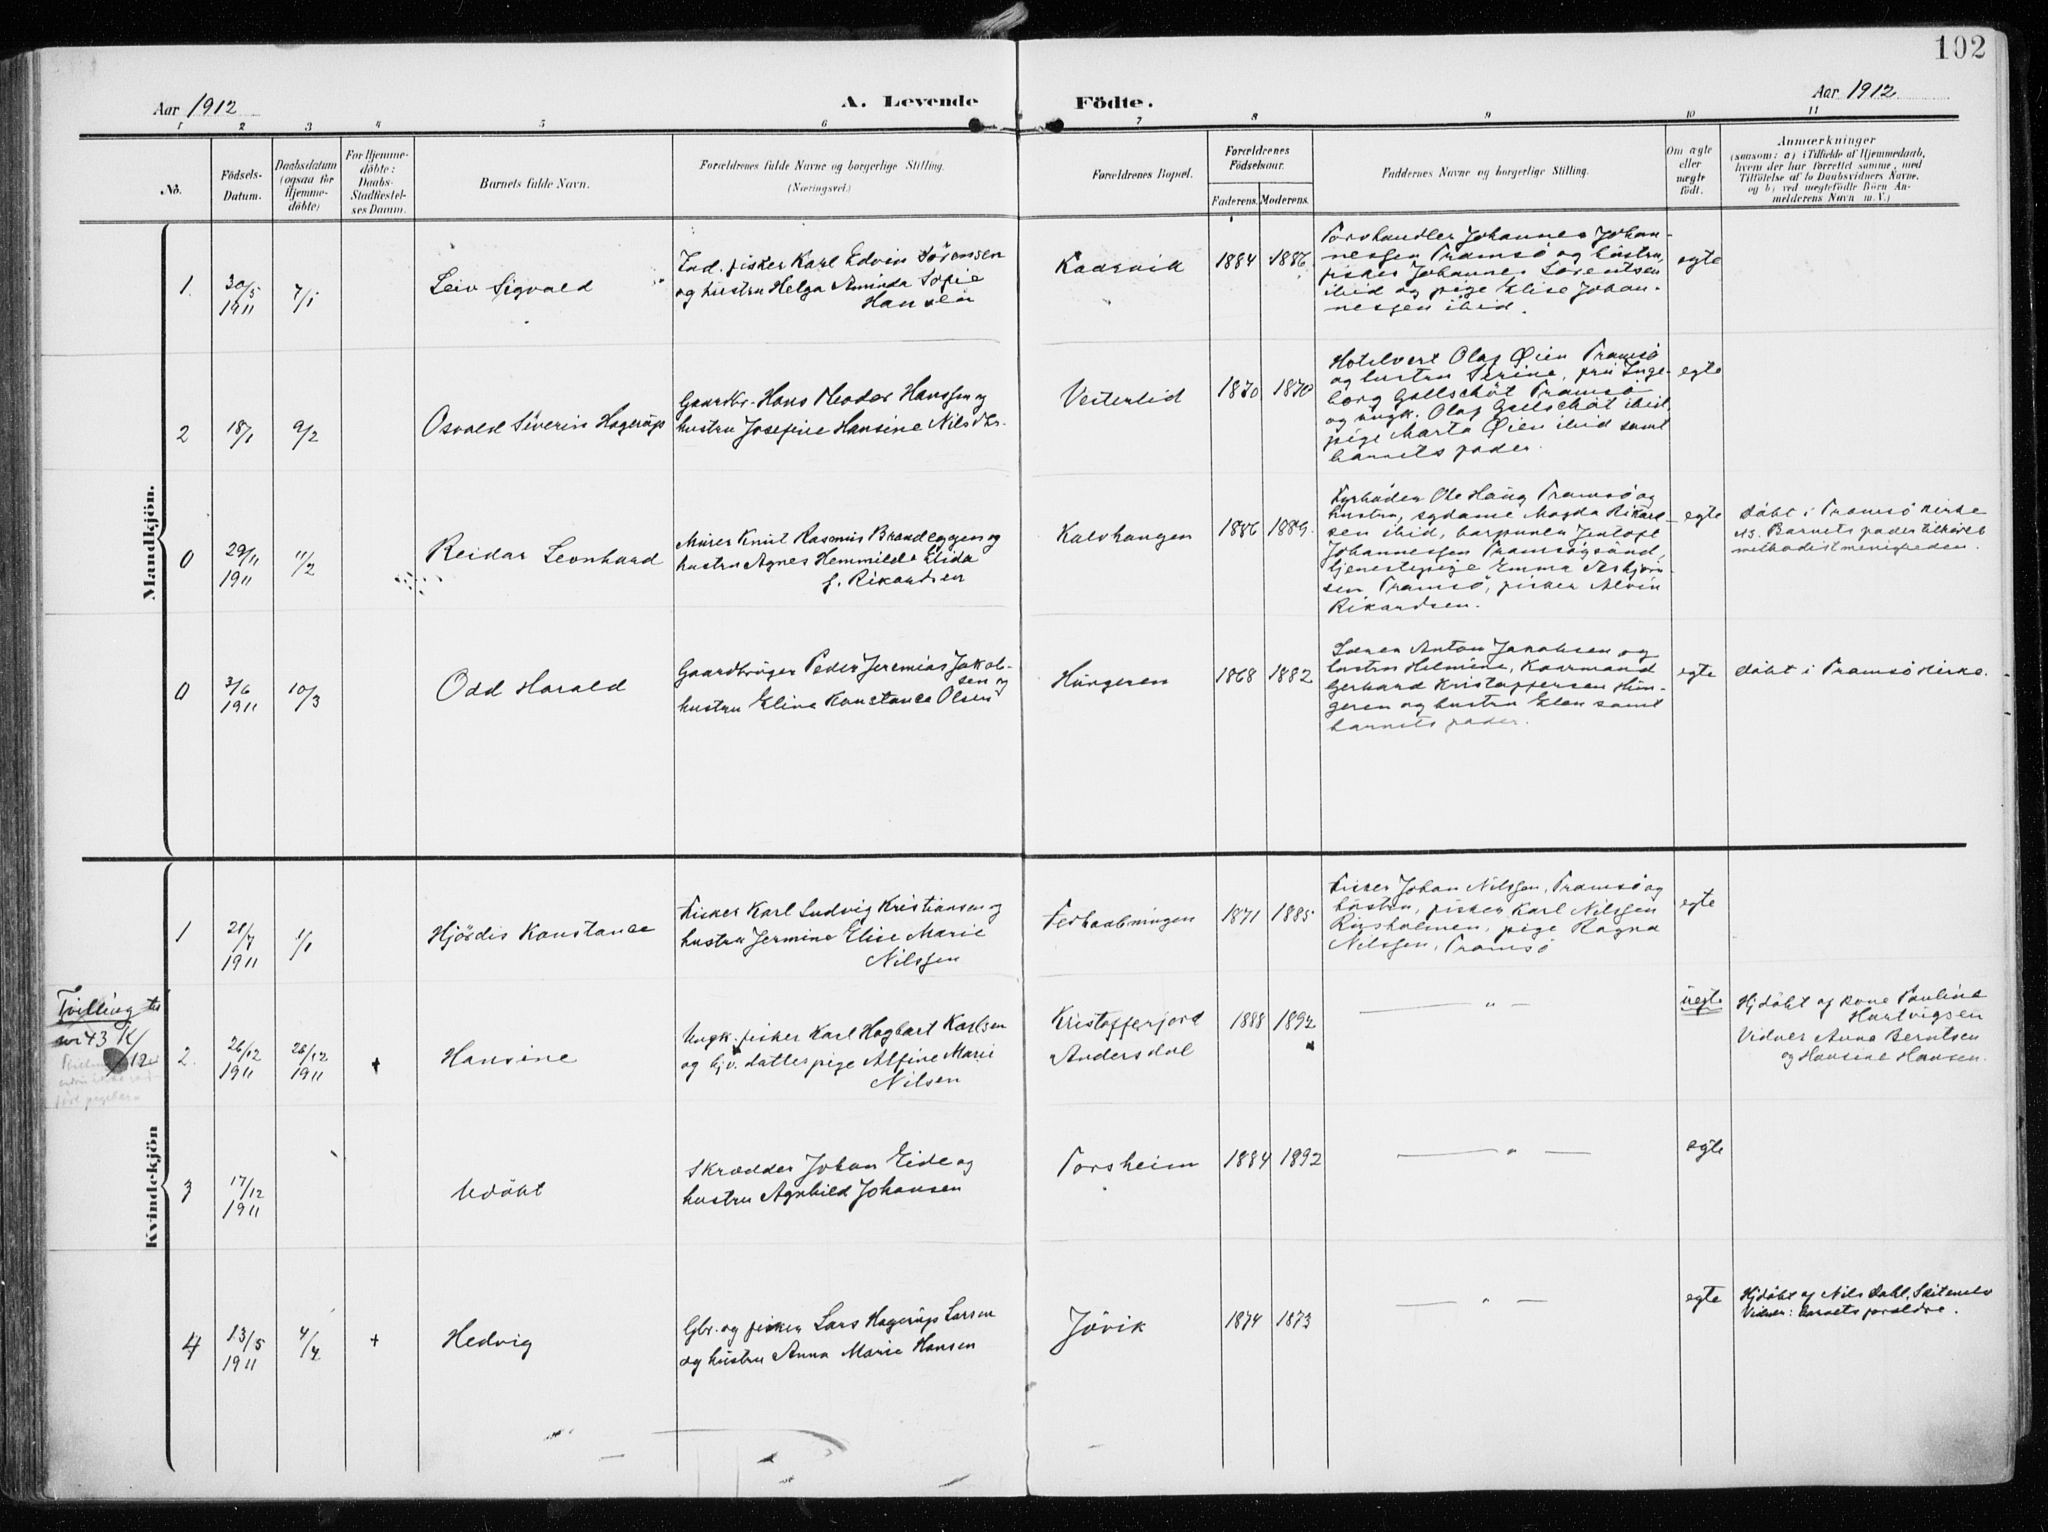 102
Aar 1912
A. Levende
Födte.
Aar 1912
1 2 3 4 5 6 7 8 9 10 11
No.
Födsels-
Datum.
Daabsdatum
(ogsaa for
Hjemme-
döbte)
For Hjemme-
döbte:
Daabs-
Stadfæstel-
ses Datum.
Barnets fulde Navn.
Forældrenes fulde Navne og borgerlige Stilling.
(Næringsvei.)
Forældrenes Bopæl.
Forældrenes
Födselsaar.
Faderens. Moderens.
Faddernes Navne og borgerlige Stilling.
Om ægte
eller
uægte
födt.
Anmærkninger
(saasom: a) i Tilfælde af Hjemmedaab,
hvem der har forrettet samme, med
Tilföielse af to Daabsvidners Navne,
og b) ved uægtefödte Börn An-
melderens Navn m. V.)
Mandkjön.
1.
30/5
1911
7/1
Leiv Sigvald
Ind. fisker Karl Edvin Sørensen
og hustru Helga Aminda Sofie
Hansen
Kaarvik
1884 1886
Torvhandler Johannes Johan-
nessen Tromsö og hustru,
fisker Johannes Lorentsen
ibid og pige Elise Johan-
nessen ibid.
egte
2
18/1
9/2
Osvald Séverin Hagerup
Gaardbr. Hans Theodor Hanssen og
hustru Josefine Hansine Nilsdtr.
Vesterlid
1870 1870
Hotelvert Olaf Øien Tromsö
og hustru Serine, frü Inge-
borg Gottschöt Tromsö
og üngk. Olaf Gottschöt ibid,
pige Marta Øien ibid samt
barnets fader.
egte
0
29/11
1911
11/2
Reidar Leonhard
Mürer Knut Rasmus Brandeggen og
hustru Agnes Hemmilde Elida
f. Rikardsen
Kalvhaugen
1886 1889
Fyrböder Ole Haüg Tromsö og
hustru, sydame Magda Rikard-
sen ibid, harpuner Jentoft
Johannessen Tromsöysünd,
tjenestepige Emma Asbjörn-
sen Tromsö, fisker Alvin
Rikardsen.
egte
döbt i Tromsö Kirke
NB. Barnets fader tilhörer
methodistmenigheden.
0
3/6
1911
10/3
Odd Harald
Gaardbrüger Peder Jeremias Jakob-
sen og
hustru Eline Konstance Olsen
Hüngeren
1868 1882
Lærer Anton Jakobsen og
hustru Helmine, Kaarmand
Gerhard Kristoffersen Hün-
geren og hustru Elen samt
barnets fader.
egte
döbt i Tromsö Kirke.
Kvindekjön
1
1911
1/1
Hjördis Konstance
Fisker Karl Ludvig Kristiansen og
hustru Jermine Elise Marie
Nilssen
1871 1885
Fisker Johan Nilssen, Tromsö og
hüstru, fisker Karl Nilssen
Rüsholmen, pige Ragna
Nilssen, Tromsö
egte
Tvilling til
nr 43 K/
2.
26/12
1911
26/12
1911
+
Hansine
Ungk. fisker Karl Hagbart Karlsen
og hjv. datter pige Alfine Marie
Nilsen
Kristofferjord
Andersdal
1888 1892
— " —
üegte
Hjdöbt af kone Pauline
Hartvigsen
Vidner Anna Berntsen
og Hansine Hansen.
3
17/12
1911
Udöbt
Skrædder Johan Eide og
hustru Agnhild Johansen
Torsheim
1884 1892
— " —
egte
4
13/5
1911
+
Hedvig
Gbr. og fisker Lars Hagerüp Larsen
og hustru Anna Marie Hansen
Jövik
1874 1873
— " —
egte
Hjdöbt af Nils Dahl, Skitenelv
Vidner: barnets foreldre.